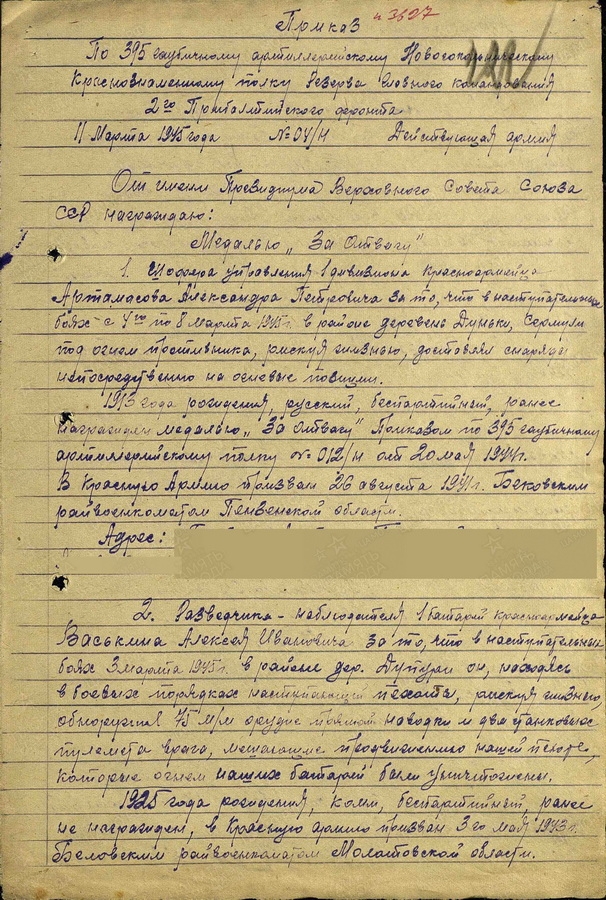 Приказ № 3627
По 395 гаубичному артиллерийскому Новосокольническому
Краснознаменному полку Резерва Главного Командования
2го Прибалтийского фронта
11 Марта 1945 года № 04/н Действующая армия
От имени Президиума Верховного Совета Союза
ССР награждаю:
Медалью „За Отвагу"
1. Шофера управления 1 дивизиона красноармейца
Артамасова Александра Петровича за то, что в наступательных
боях с 4го по 8 марта 1945г. в районе деревень Дуньки, Сермули
под огнем противника, рискуя жизнью, доставлял снаряды
непосредственно на огневые позиции.
1913 года рождения, русский, беспартийный, ранее
награжден медалью „За Отвагу" Приказом по 395 гаубичному
артиллерийскому полку № 012/н от 20 мая 1944г.
В Красную Армию призван 26 августа 1941г. Бековским
райвоенкоматом Пензенской области.
Адрес:
2. Разведчика-наблюдателя 1 батареи красноармейца
Васькина Алексея Ивановича за то, что в наступательных
боях 3 марта 1945г. в районе дер. Дупури он, находясь
в боевых порядках наступающей пехоты, рискуя жизнью,
обнаружил 75 м/м орудие прямой наводки и два станковых
пулемета врага, мешающие продвижению нашей пехоте,
которые огнем наших батарей были уничтожены.
1925 года рождения, коми, беспартийный, ранее
не награжден, в Красную армию призван 3го мая 1943г.
Беловским райвоенкоматом Молотовской области.